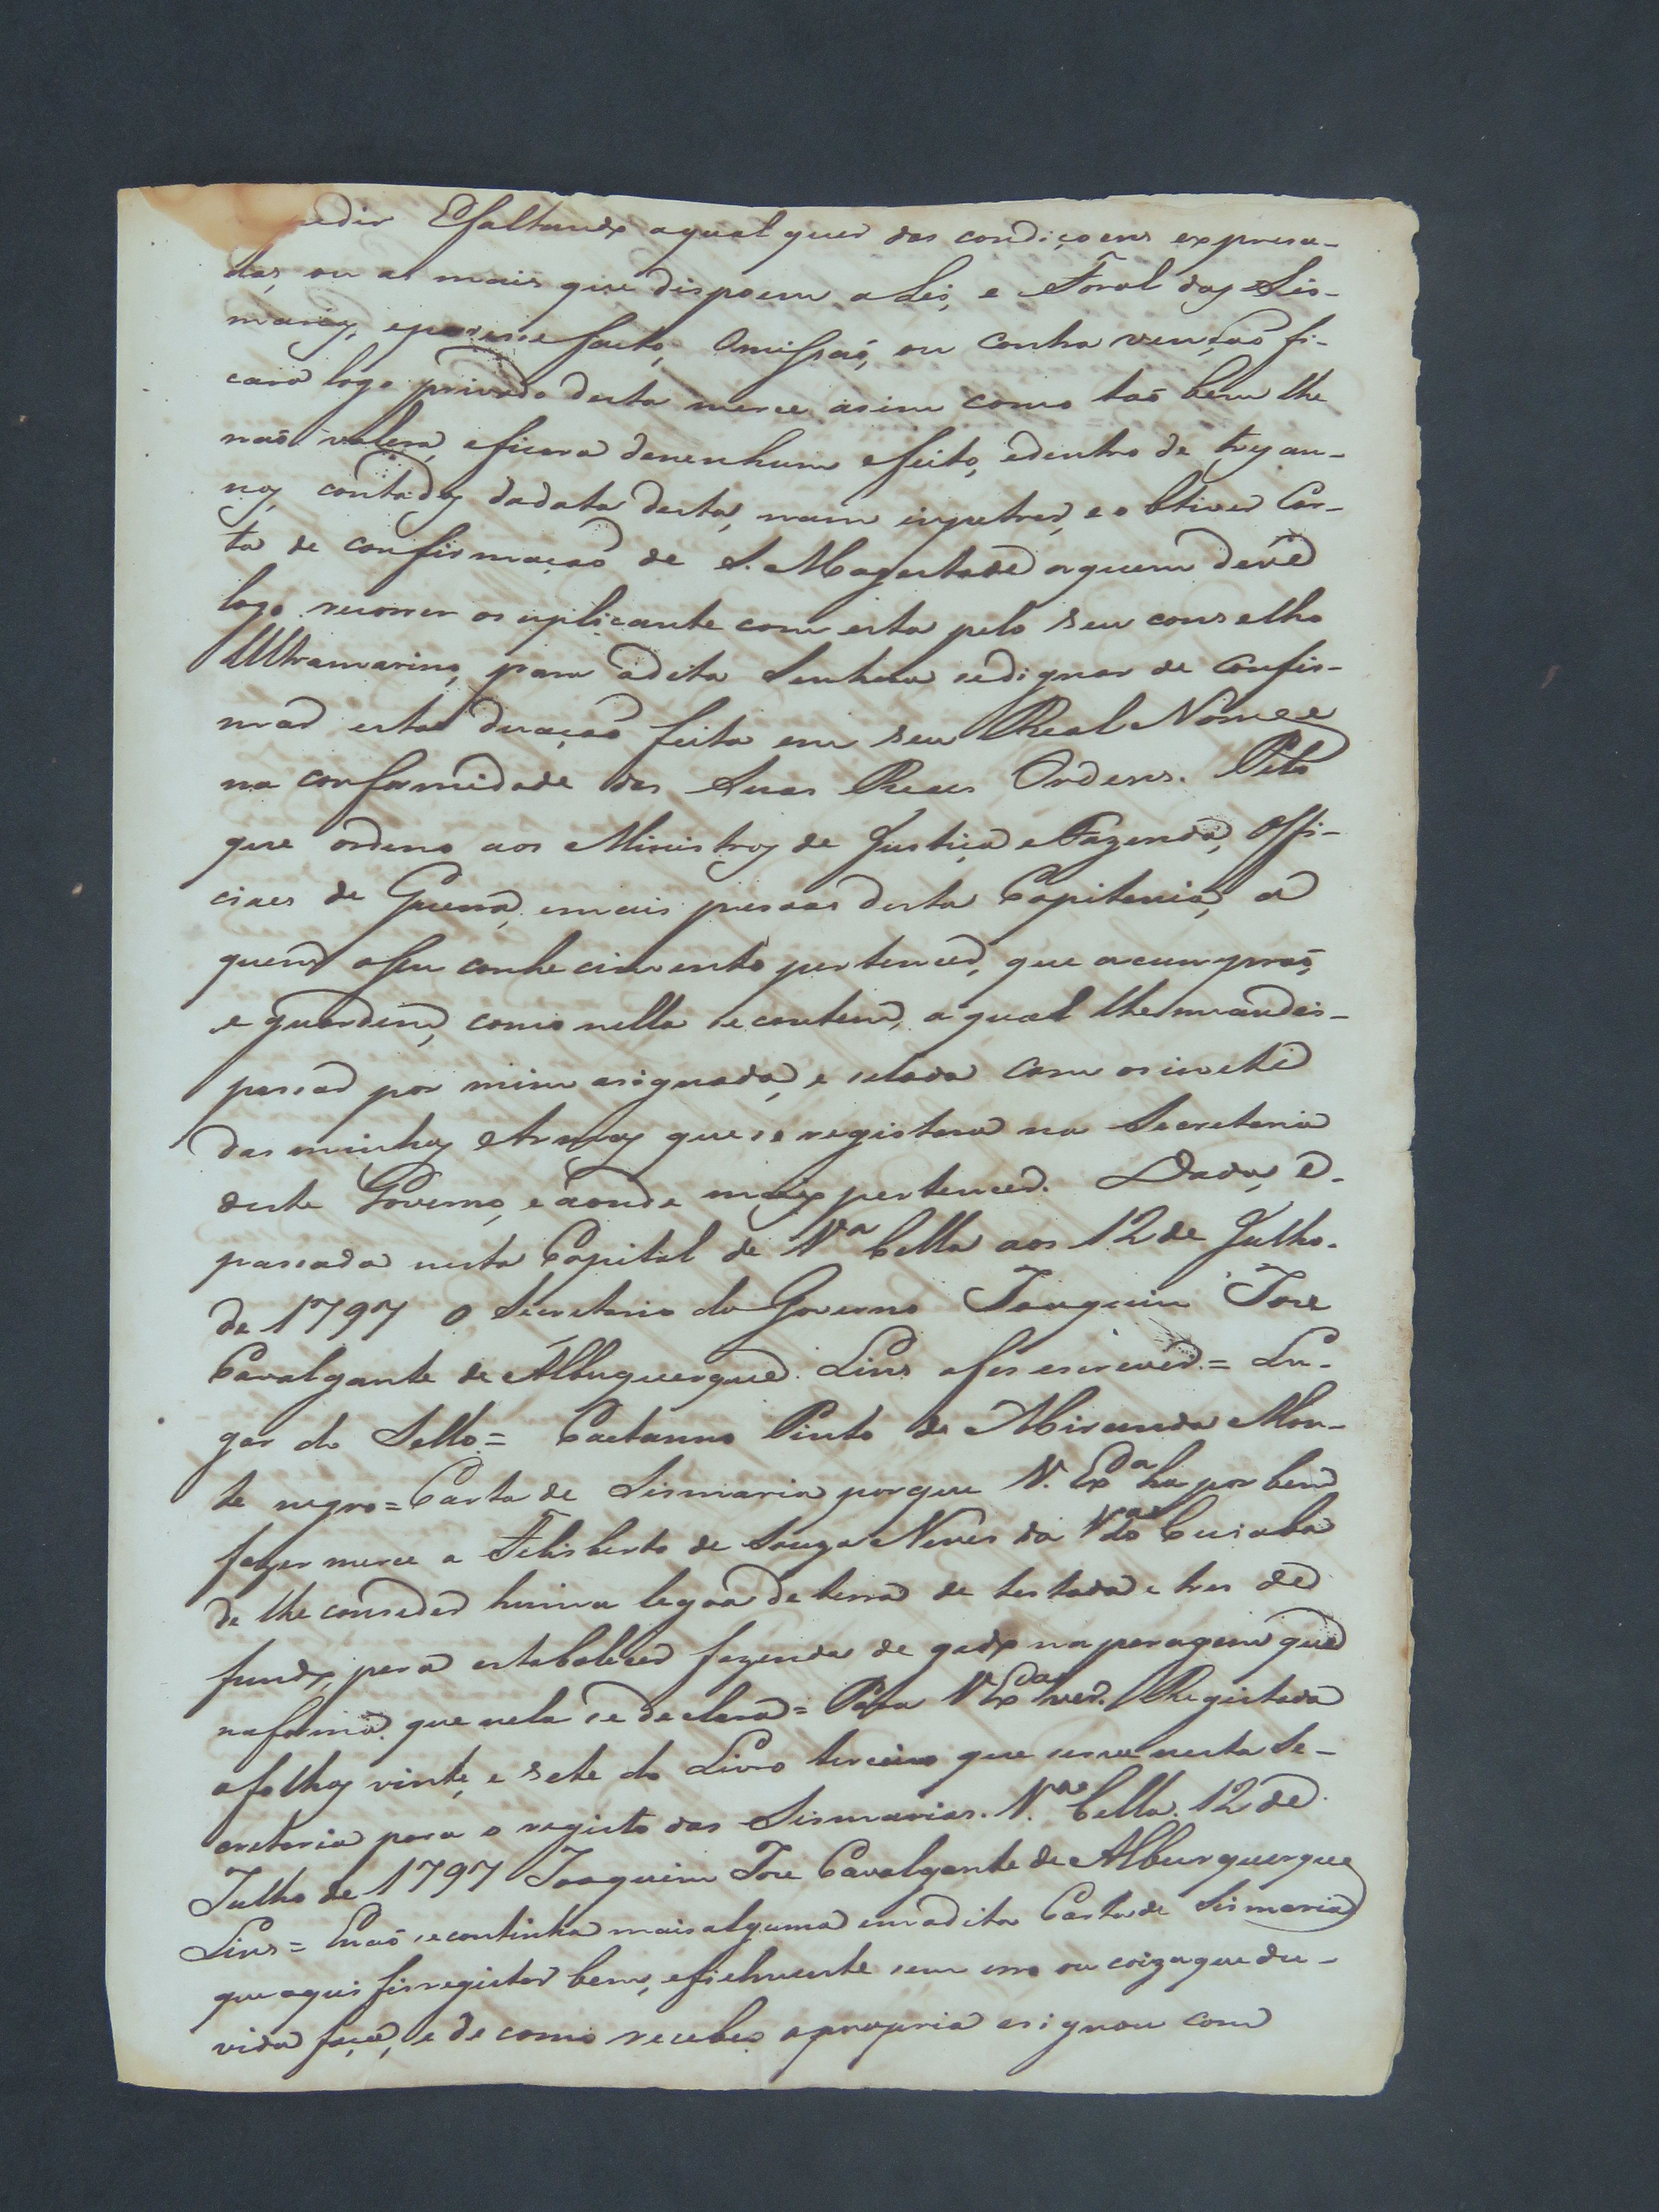 edir Efaltando aqual quer das condiçoens expresa-
das, ou as mais que dispoem a Lei, e Foral das Sis-
marias, e por esse facto, Omissaõ, ou contra vençaõ fi-
cara logo privado desta merce asim como taõ bem lhe
naõ valera, eficara denenhum efeito, edentro de tres an-
nos, contados dadata desta, nam inpetrar, e obtiver Car-
ta de confirmaçaõ de S. Magestade aquem deve
logo recorrer osuplicante com esta pelo seu conselho
Ultramarino, para adita Senhora sedignar de Confir-
mar esta doaçaõ feita em seu Real Nome e
na conformidade das Suas Reaes Ordens. Pelo
que ordeno aos Ministros de Justiça e Fazenda, Offi-
ciaes de Guerra, emais pesoas desta Capitania, a
quem oseu conhecimento pertencer, que acumpraõ,
e guardem, como nella se contem, aqual lhe mandei
pasar por mim asignada, e selada com osinete
das minhas Armas que se registara na Secretaria
deste Governo, e aonde mais pertencer. Dada, e
pasada nesta Capital de Va Bella aos 12 de Julho
de 1797 O Secretario do Governo Joaquim Joze
Cavalgante de Albuquerque Lins afes escrever = Lu-
gar do Sello = Caetanno Pinto de Miranda Mon-
te negro = Carta de Sismaria porque V. Exa ha por bem
fazer merce a Felisberto de Souza Neves da Va do Cuiaba
de lhe conseder huma legoa de terra de testada e tres de
fundo, pera estabalecer fazenda de gado na paragem que
naforma que nela se declara = Para V Exa ver. Registada
afolhas vinte, e sete do Livro terceiro que serve nesta Se-
cretaria para o registo das Sismarias. Va Bella 12 de
Julho de 1797 Joaquim Joze Cavalgante de Alburquerque
Lins = Enaõ secontinha maisalguma emadita Carta de Sismaria
que aqui fis registar bem, efielmente sem erro ou coizaque du-
vida faça, e de como recebeo apropria asignou com